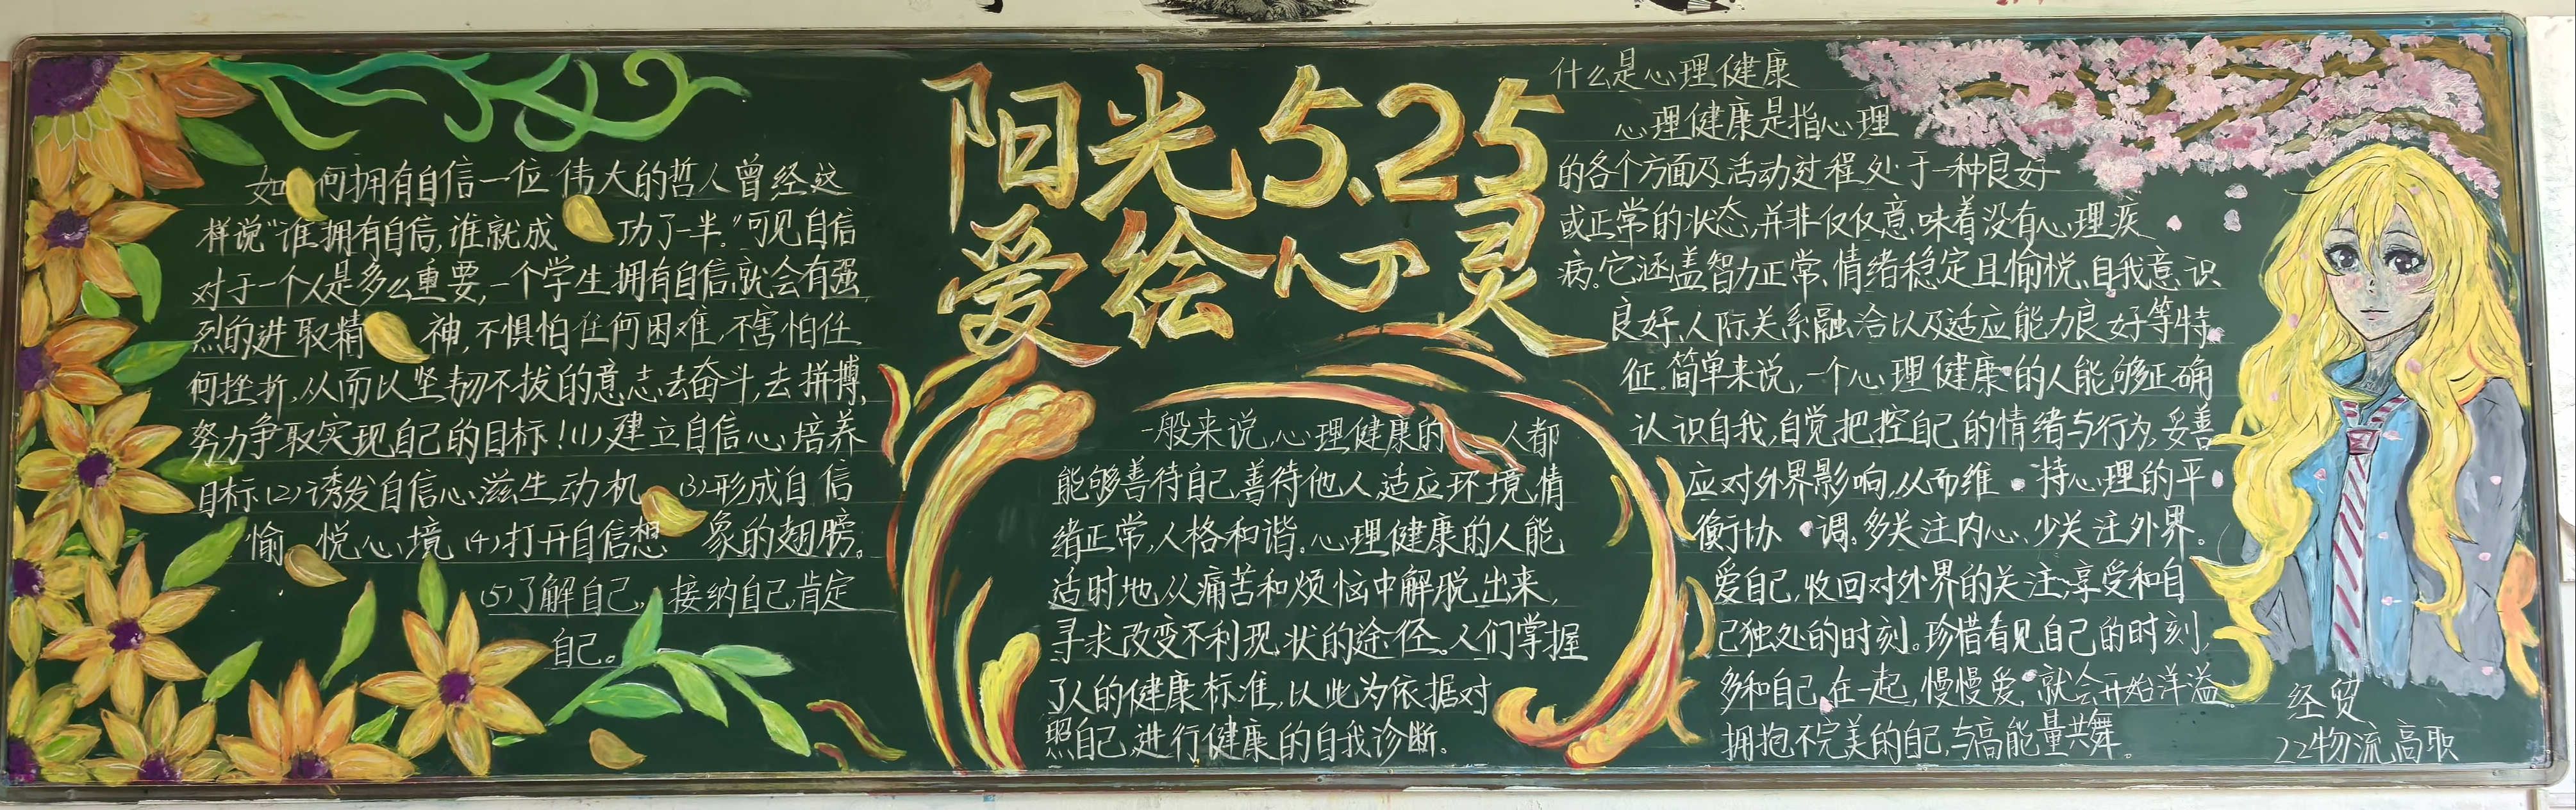 如何拥有自信一位伟大的哲人曾经这
样说“谁拥有自信,谁就成功了一半。”可见自信
对于一个人是多么重要,一个学生拥有自信,就会有强
烈的进取精神,不惧怕任何困难,不害怕任
何挫折,从而以坚韧不拔的意志去奋斗,去拼搏,
努力争取实现自己的目标!(1)建立自信心,培养
目标(2)诱发自信心,滋生动机 (3)形成自信
愉悦心境(4)打开自信想象的翅膀。
(5)了解自己,接纳自己,肯定
自己。
阳光5.25
爱绘心灵
一般来说,心理健康的人都
能够善待自己,善待他人,适应环境,情
绪正常,人格和谐。心理健康的人能
适时地从痛苦和烦恼中解脱出来,
寻求改变不利现状的途径。人们掌握
了人的健康标准,以此为依据对
照自己,进行健康的自我诊断。
什么是心理健康
心理健康是指心理
的各个方面及活动过程处于一种良好
或正常的状态,并非仅仅意味着没有心理疾
病。它涵盖智力正常、情绪稳定且愉悦、自我意识
良好、人际关系融洽以及适应能力良好等特
征。简单来说,一个心理健康的人能够正确
认识自我,自觉把控自己的情绪与行为,妥善
应对外界影响,从而维持心理的平
衡协调。多关注内心、少关注外界。
爱自己,收回对外界的关注,享受和自
己独处的时刻。珍惜看见自己的时刻,
多和自己在一起,慢慢爱,就会开始洋溢。
拥抱不完美的自己,与高能量共舞。
经贸
22物流高职